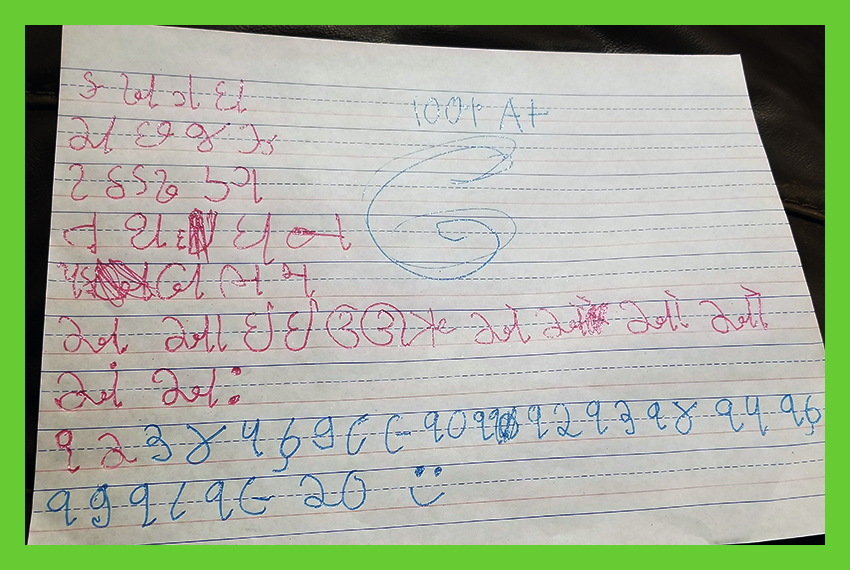 ક ખ ગ ઘ
100% A+
ચ છ જ ઝ
ટ ઠ ડ ઢ ણ
ત થ ધ ન
પ ફ બ ભ મ
અ આ ઇ ઈ ઉ ઊ ઋ એ ઐ ઓ ઔ
અં અઃ
૧ ૨ ૩ ૪ ૫ ૬ ૭ ૮ ૯ ૧૦ ૧૧ ૧૨ ૧૩ ૧૪ ૧૫ ૧૬
૧૭ ૧૮ ૧૯ ૨૦